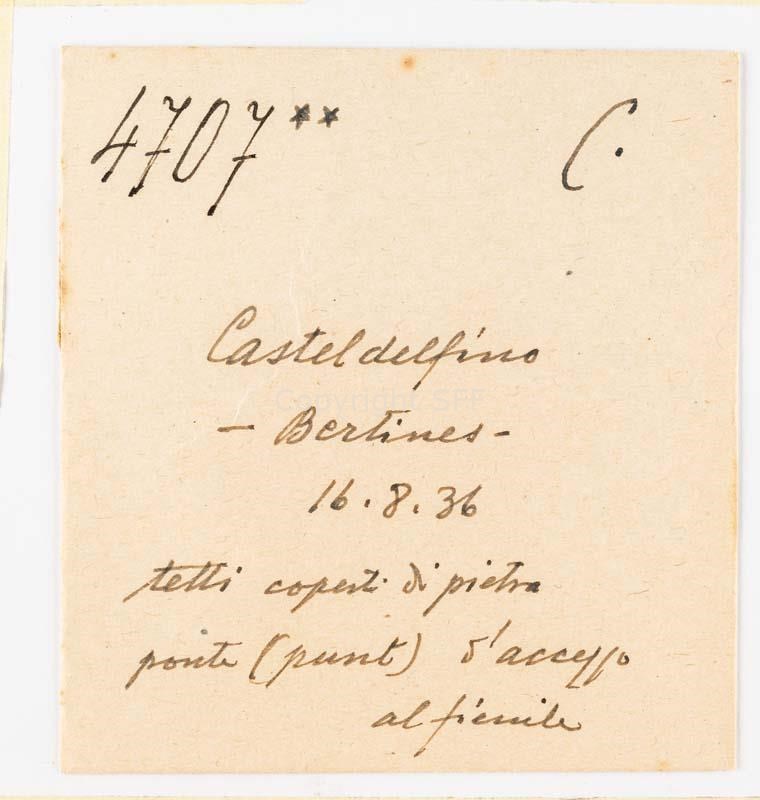 4707** C.
Casteldelfino
Copyright SFF
- Bertines -
16.8.36
tetti coperti di pietra
ponte (punt) d'accesso
al fienile